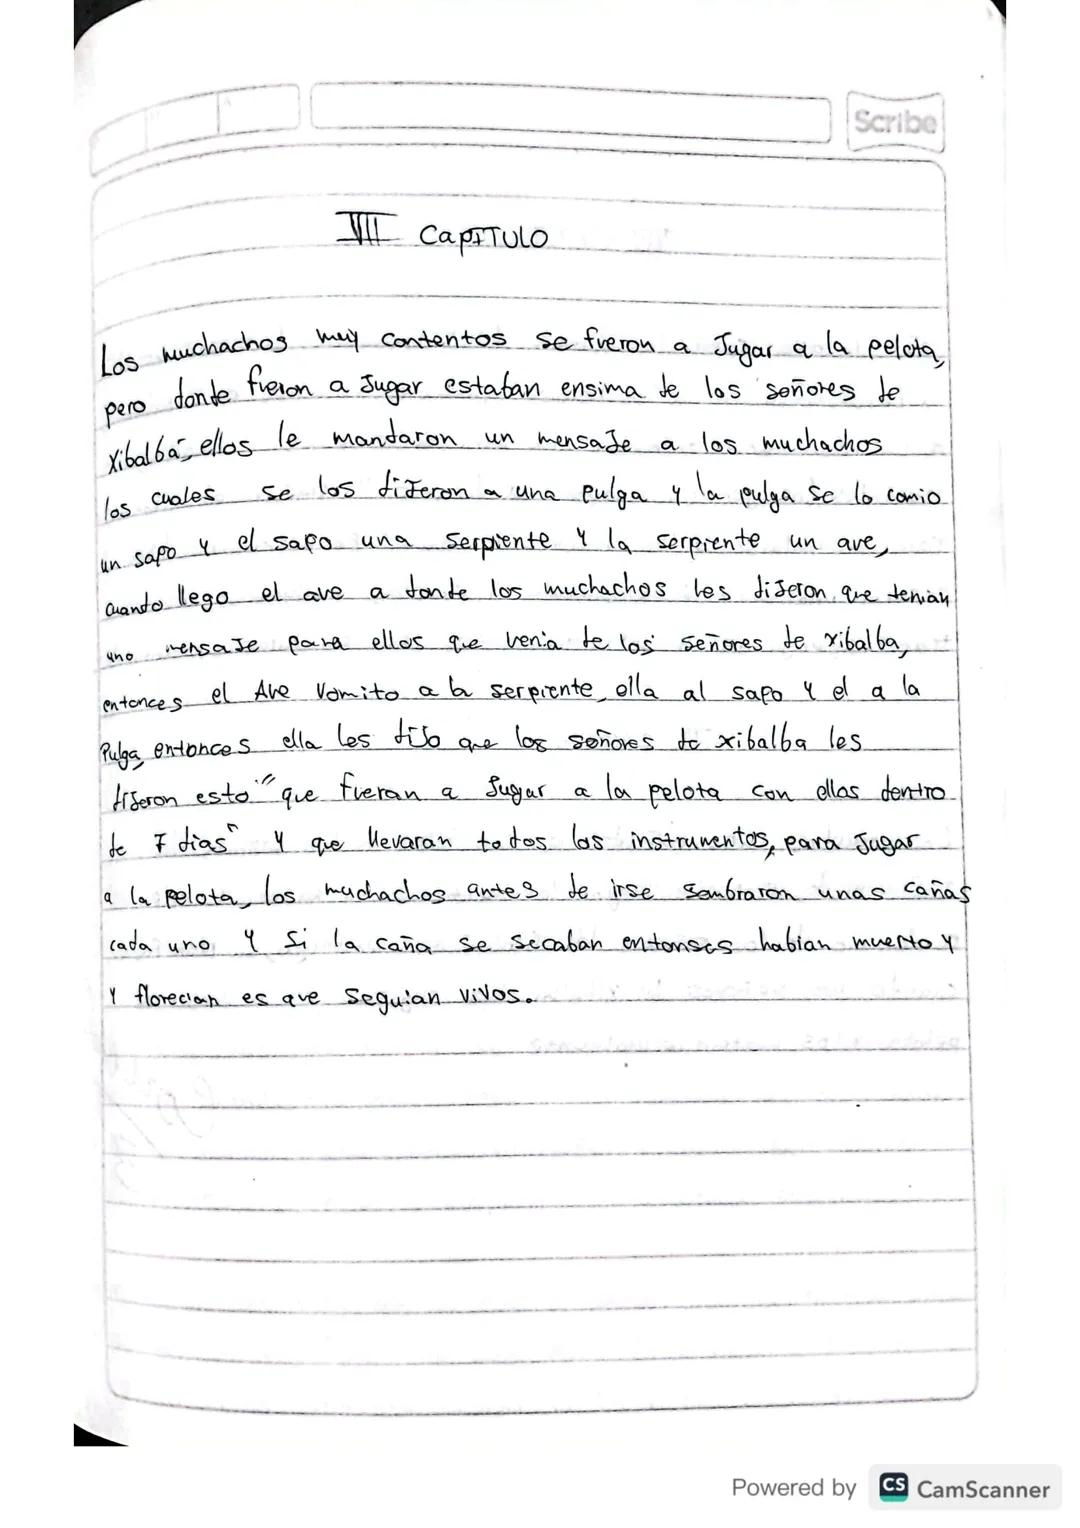 Scribe
VII CapITULO
Los muchachos muy contentos se fueron a Jugar a la pelota,
pero donde fueron a Jugar estaban ensima de los señores de
Xibalbá, ellos le mandaron un mensaje a los muchachos
los cuales se los dijeron a una pulga y la pulga se lo comio
un sapo y el sapo una serpiente y la serpiente un ave,
cuando llego el ave a donde los muchachos les dijeron que tenian
uno mensaje para ellos que venia de los señores de xibalba,
entonces el Ave Vomito a la serpiente, ella al sapo y el a la
Pulga, entonces ella les dijo que los señores de xibalba les
dijeron esto "que fueran a Jugar a la pelota con ellos dentro
de 7 dias" y que llevaran todos los instrumentos, para Jugar
a la pelota, los muchachos antes de irse sembraron unas cañas
cada uno, y si la caña se secaban entonses habian muerto y
y florecian es que seguian vivos.
Powered by CS CamScanner